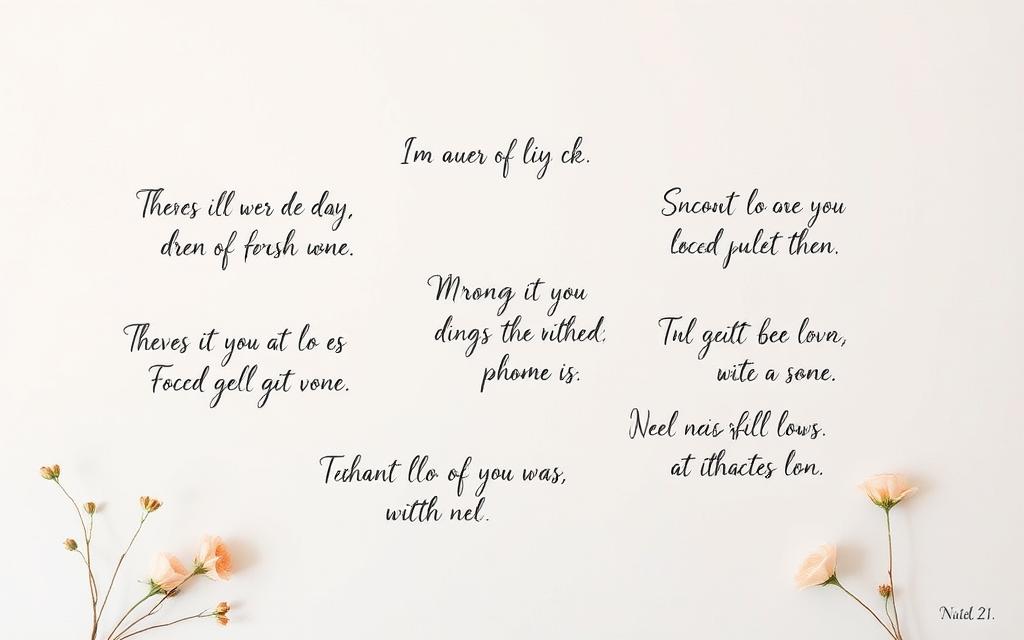 Im auer of liy ck.
Theres ill wer de day,
dren of forsh wone.
Sncont lo are you
loced pulet then.
Mrong it you
dings the vithed;
phome is.
Theves it you at lo es
Foccd gell git vone.
Tnl geitt bee lovn,
wite a sone.
Neel nais fill lows.
at ithactes lon.
Techant llo of you was,
witth nel.
Nutel 21.